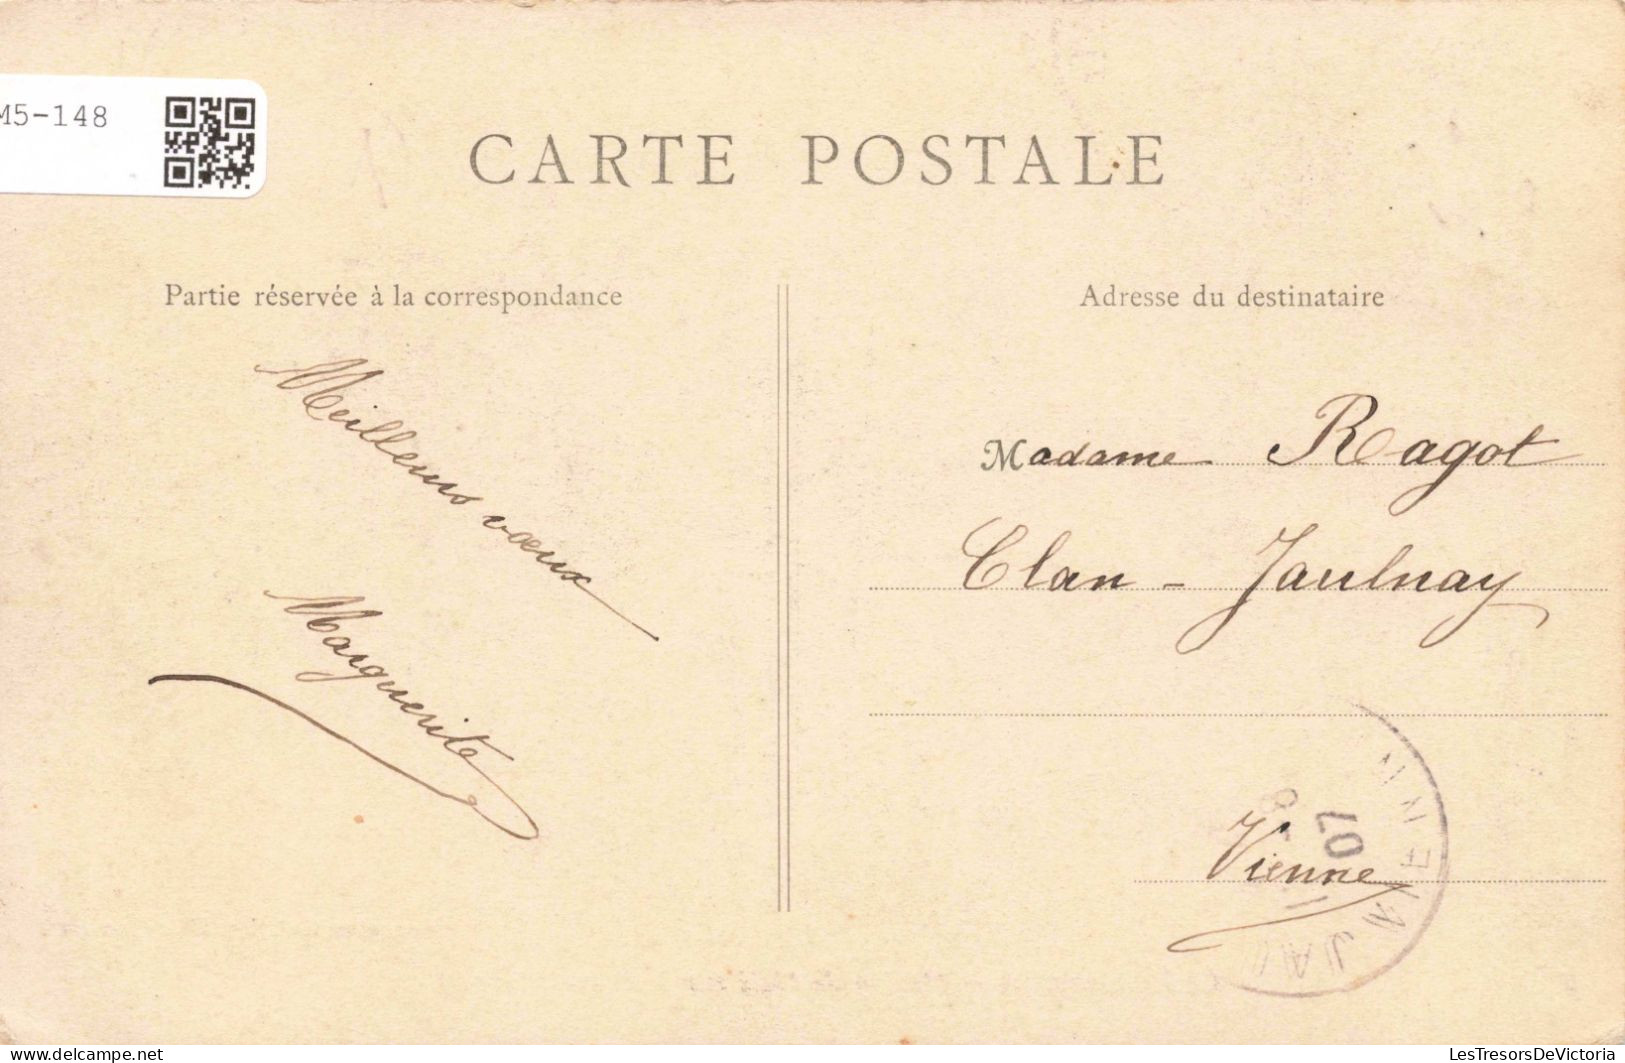 M5-148
CARTE POSTALE
Partie réservée à la correspondance
Adresse du destinataire
Meilleurs vœux
Marguerite
Madame Ragot
Clan - Jaulnay
Vienne
07
www.delcampe.net
LesTresorsDeVictoria